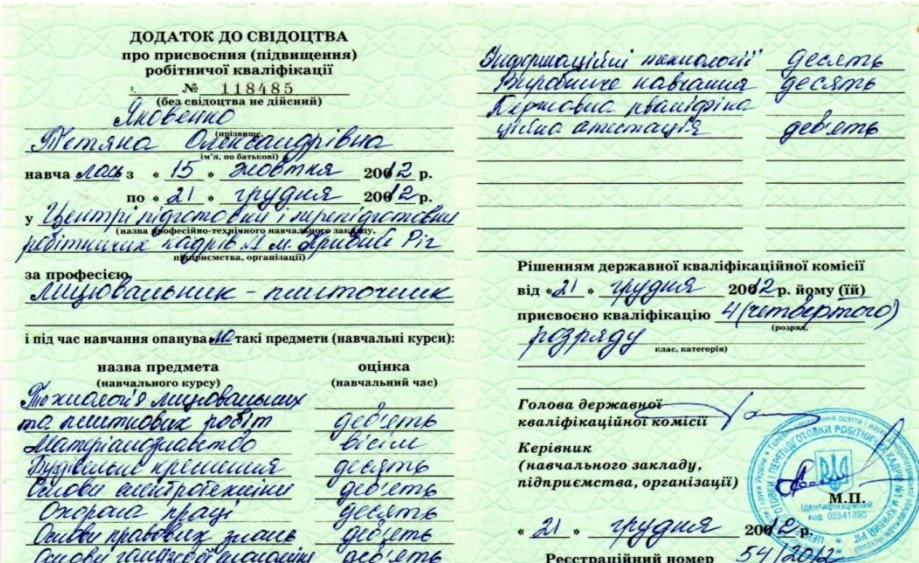 ДОДАТОК ДО СВІДОЦТВА
про присвоєння (підвищення)
робітничої кваліфікації
№ 118485
(без свідоцтва не дійсний)
Яковенко
(прізвище,
Тетяна Олександрівна
ім'я, по батькові)
навча лась з « 15 » жовтня 20012 р.
по « 21 » грудня 20012 р.
у Центрі підготовки і перепідготовки
(назва професійно-технічного навчального закладу,
робітничих кадрів №1 м. Кривий Ріг
підприємства, організації)
за професією
лицювальник - плиточник
і під час навчання опанува ла такі предмети (навчальні курси):
назва предмета оцінка
(навчального курсу) (навчальний час)
Технологія лицювальних
та плиткових робіт дев'ять
Матеріалознавство вісім
Будівельне креслення десять
Основи електротехніки дев'ять
Охорона праці десять
Основи правових знань дев'ять
Основи галузевої економіки дев'ять
Інформаційні технології десять
Виробниче навчання десять
Державна кваліфіка
ційна атестація дев'ять
Рішенням державної кваліфікаційної комісії
від « 21 » грудня 20012 р. йому (їй)
присвоєно кваліфікацію 4 (четвертого)
(розряд,
розряду
клас, категорія)
Голова державної
кваліфікаційної комісії
Керівник
(навчального закладу,
підприємства, організації)
М.П.
Ідентифікаційний
код 02541390
« 21 » грудня 20012 р.
Реєстраційний номер 54/2012